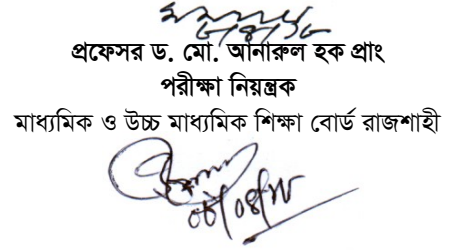 প্রফেসর ড. মো. আনারুল হক প্রাং
পরীক্ষা নিয়ন্ত্রক
মাধ্যমিক ও উচ্চ মাধ্যমিক শিক্ষা বোর্ড রাজশাহী